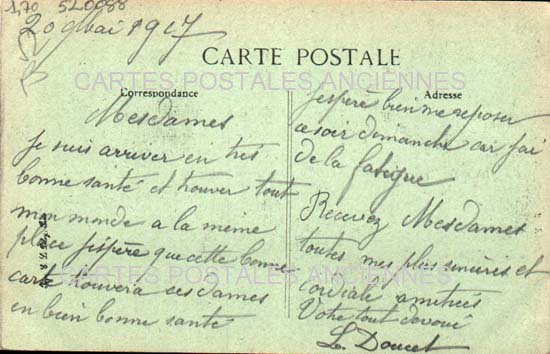 1,70 520088
20 Mai 1917
CARTE POSTALE
CARTES POSTALES ANCIENNES
Correspondance
Adresse
Mesdames
je suis arriver en très
bonne santé et trouver tout
mon monde a la meine
place j'espère que cette bonne
carte trouvera ces dames
en bien bonne santé
j'espère bien me reposer
ce soir dimanche car j'ai
de la fatigue
Recevez Mesdames
toutes mes plus sincères et
cordiale amitiées
Votre tout devoué
L. Doucet
CARTES POSTALES ANCIENNES